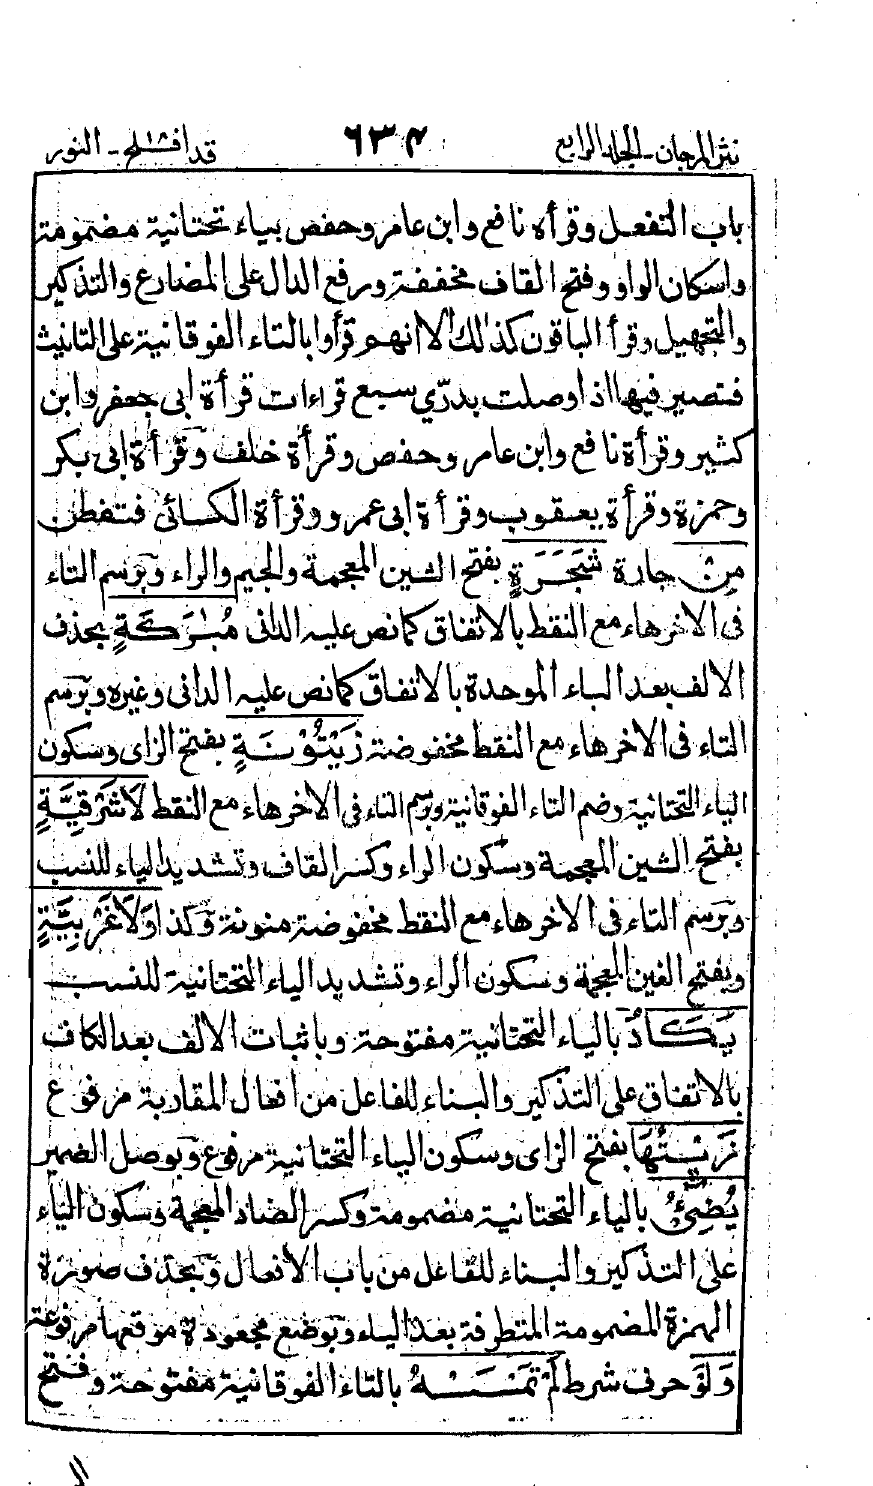 نثر المرجان - الجلد الرابع ٦٣٤ قد افلح ١٨ - النور
باب التفعل وقرأه نافع وابن عامر وحفص بياء تحتانية مضمومة
واسكان الواو وفتح القاف مخففة ورفع الدال على المضارع والتذكير
والتجهيل وقرأ الباقون كذلك الا انهم قرأوا بالتاء الفوقانية على التانيث
فتصير فيها اذا وصلت بدرّي سبع قراءات قرأة ابى جعفر وابن
كثير وقرأة نافع وابن عامر وحفص وقرأة خلف وقرأة ابى بكر
وحمزة وقرأة يعقوب وقرأة ابى عمرو وقرأة الكسائى فتفطن
مِنْ جارة شَجَرَةٍ بفتح الشين المعجمة والجيم والراء وبرسم التاء
فى الاخر هاء مع النقط بالاتفاق كما نص عليه الدانى مُبٰرَكَةٍ بحذف
الالف بعد الباء الموحدة بالاتفاق كما نص عليه الدانى وغيره وبرسم
التاء فى الاخر هاء مع النقط مخفوضة زَيْتُوْنَةٍ بفتح الزاى وسكون
الياء التحتانية وضم التاء الفوقانية وبرسم التاء فى الاخر هاء مع النقط لَاشَرْقِيَّةٍ
بفتح الشين المعجمة وسكون الراء وكسر القاف وتشديد الياء للنسب
وبرسم التاء فى الاخر هاء مع النقط مخفوضة منونة وكذا وَلَاغَرْبِيَّةٍ
وبفتح الغين المعجمة وسكون الراء وتشديد الياء التحتانية للنسب
يَكَادُ بالياء التحتانية مفتوحة وباثبات الالف بعد الكاف
بالاتفاق على التذكير والبناء للفاعل من افعال المقاربة مرفوع
زَيْتُهَا بفتح الزاى وسكون الياء التحتانية مرفوع وبوصل الضمير
يُضِيْٓءُ بالياء التحتانية مضمومة وكسر الضاد المعجمة وسكون الياء
على التذكير والبناء للفاعل من باب الافعال وبحذف صورة
الهمزة المضمومة المتطرفة بعد الياء وبوضع مجعودة موقعها مرفوعة
وَلَوْ حرف شرط لَمْ تَمْسَسْهُ بالتاء الفوقانية مفتوحة وفتح